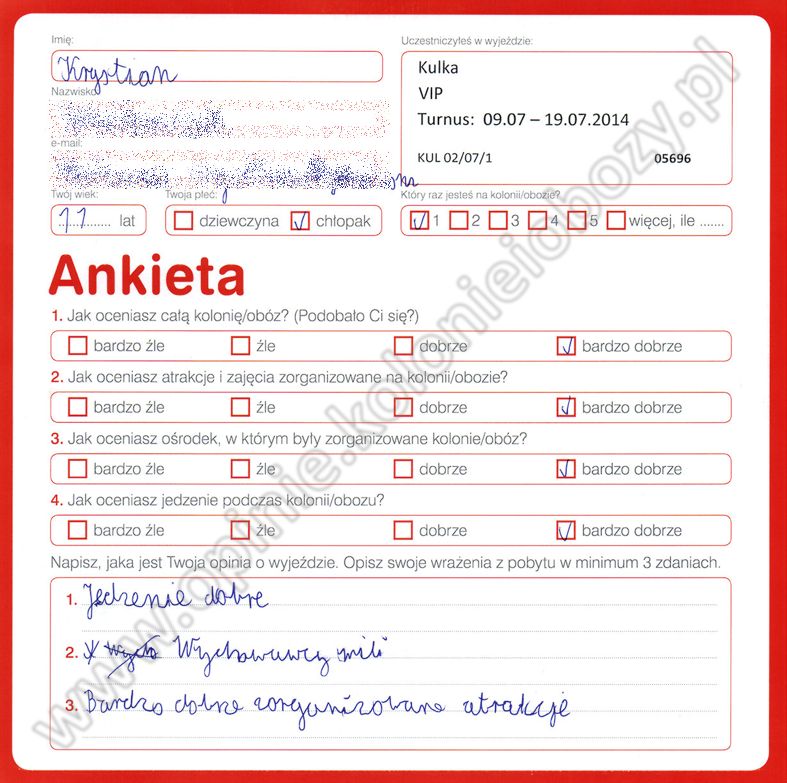 Imię:
Uczestniczyłeś w wyjeździe:
Krystian
Kulka
VIP
Turnus: 09.07 – 19.07.2014
KUL 02/07/1 05696
Nazwisko
e-mail:
Twój wiek: Twoja płeć: Który raz jesteś na kolonii/obozie?
11 lat dziewczyna chłopak 1 2 3 4 5 więcej, ile .......
Ankieta
1. Jak oceniasz całą kolonię/obóz? (Podobało Ci się?)
bardzo źle źle dobrze bardzo dobrze
2. Jak oceniasz atrakcje i zajęcia zorganizowane na kolonii/obozie?
bardzo źle źle dobrze bardzo dobrze
3. Jak oceniasz ośrodek, w którym były zorganizowane kolonie/obóz?
bardzo źle źle dobrze bardzo dobrze
4. Jak oceniasz jedzenie podczas kolonii/obozu?
bardzo źle źle dobrze bardzo dobrze
Napisz, jaka jest Twoja opinia o wyjeździe. Opisz swoje wrażenia z pobytu w minimum 3 zdaniach.
1. Jedzenie dobre
2. Wychowawcy mili
3. Bardzo dobrze zorganizowane atrakcje
www.opinie.kolonieiobozy.pl